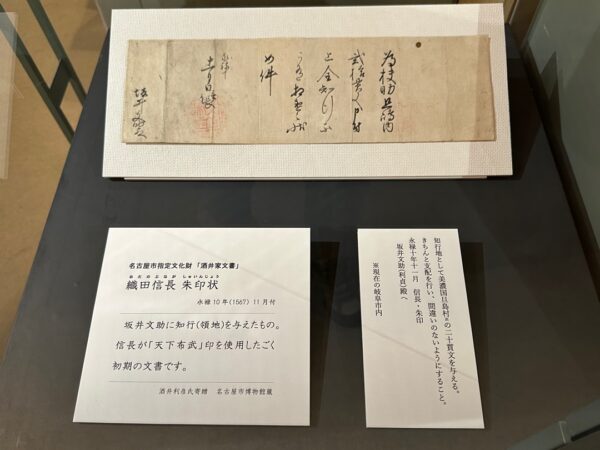 為扶助旦嶋内
弐拾貫文申付
上全知行不
可有相違之状
如件
永禄十
十一月日
坂井文助殿
名古屋市指定文化財「酒井家文書」
おだのぶなが しゅいんじょう
織田信長 朱印状
永禄10年(1567)11月付
坂井文助に知行(領地)を与えたもの。
信長が「天下布武」印を使用したごく
初期の文書です。
酒井利彦氏寄贈 名古屋市博物館蔵
知行地として美濃国旦島村※の二十貫文を与える。
きちんと支配を行い、間違いのないようにすること。
永禄十年十一月 信長・朱印
坂井文助(利貞)殿へ
※現在の岐阜市内